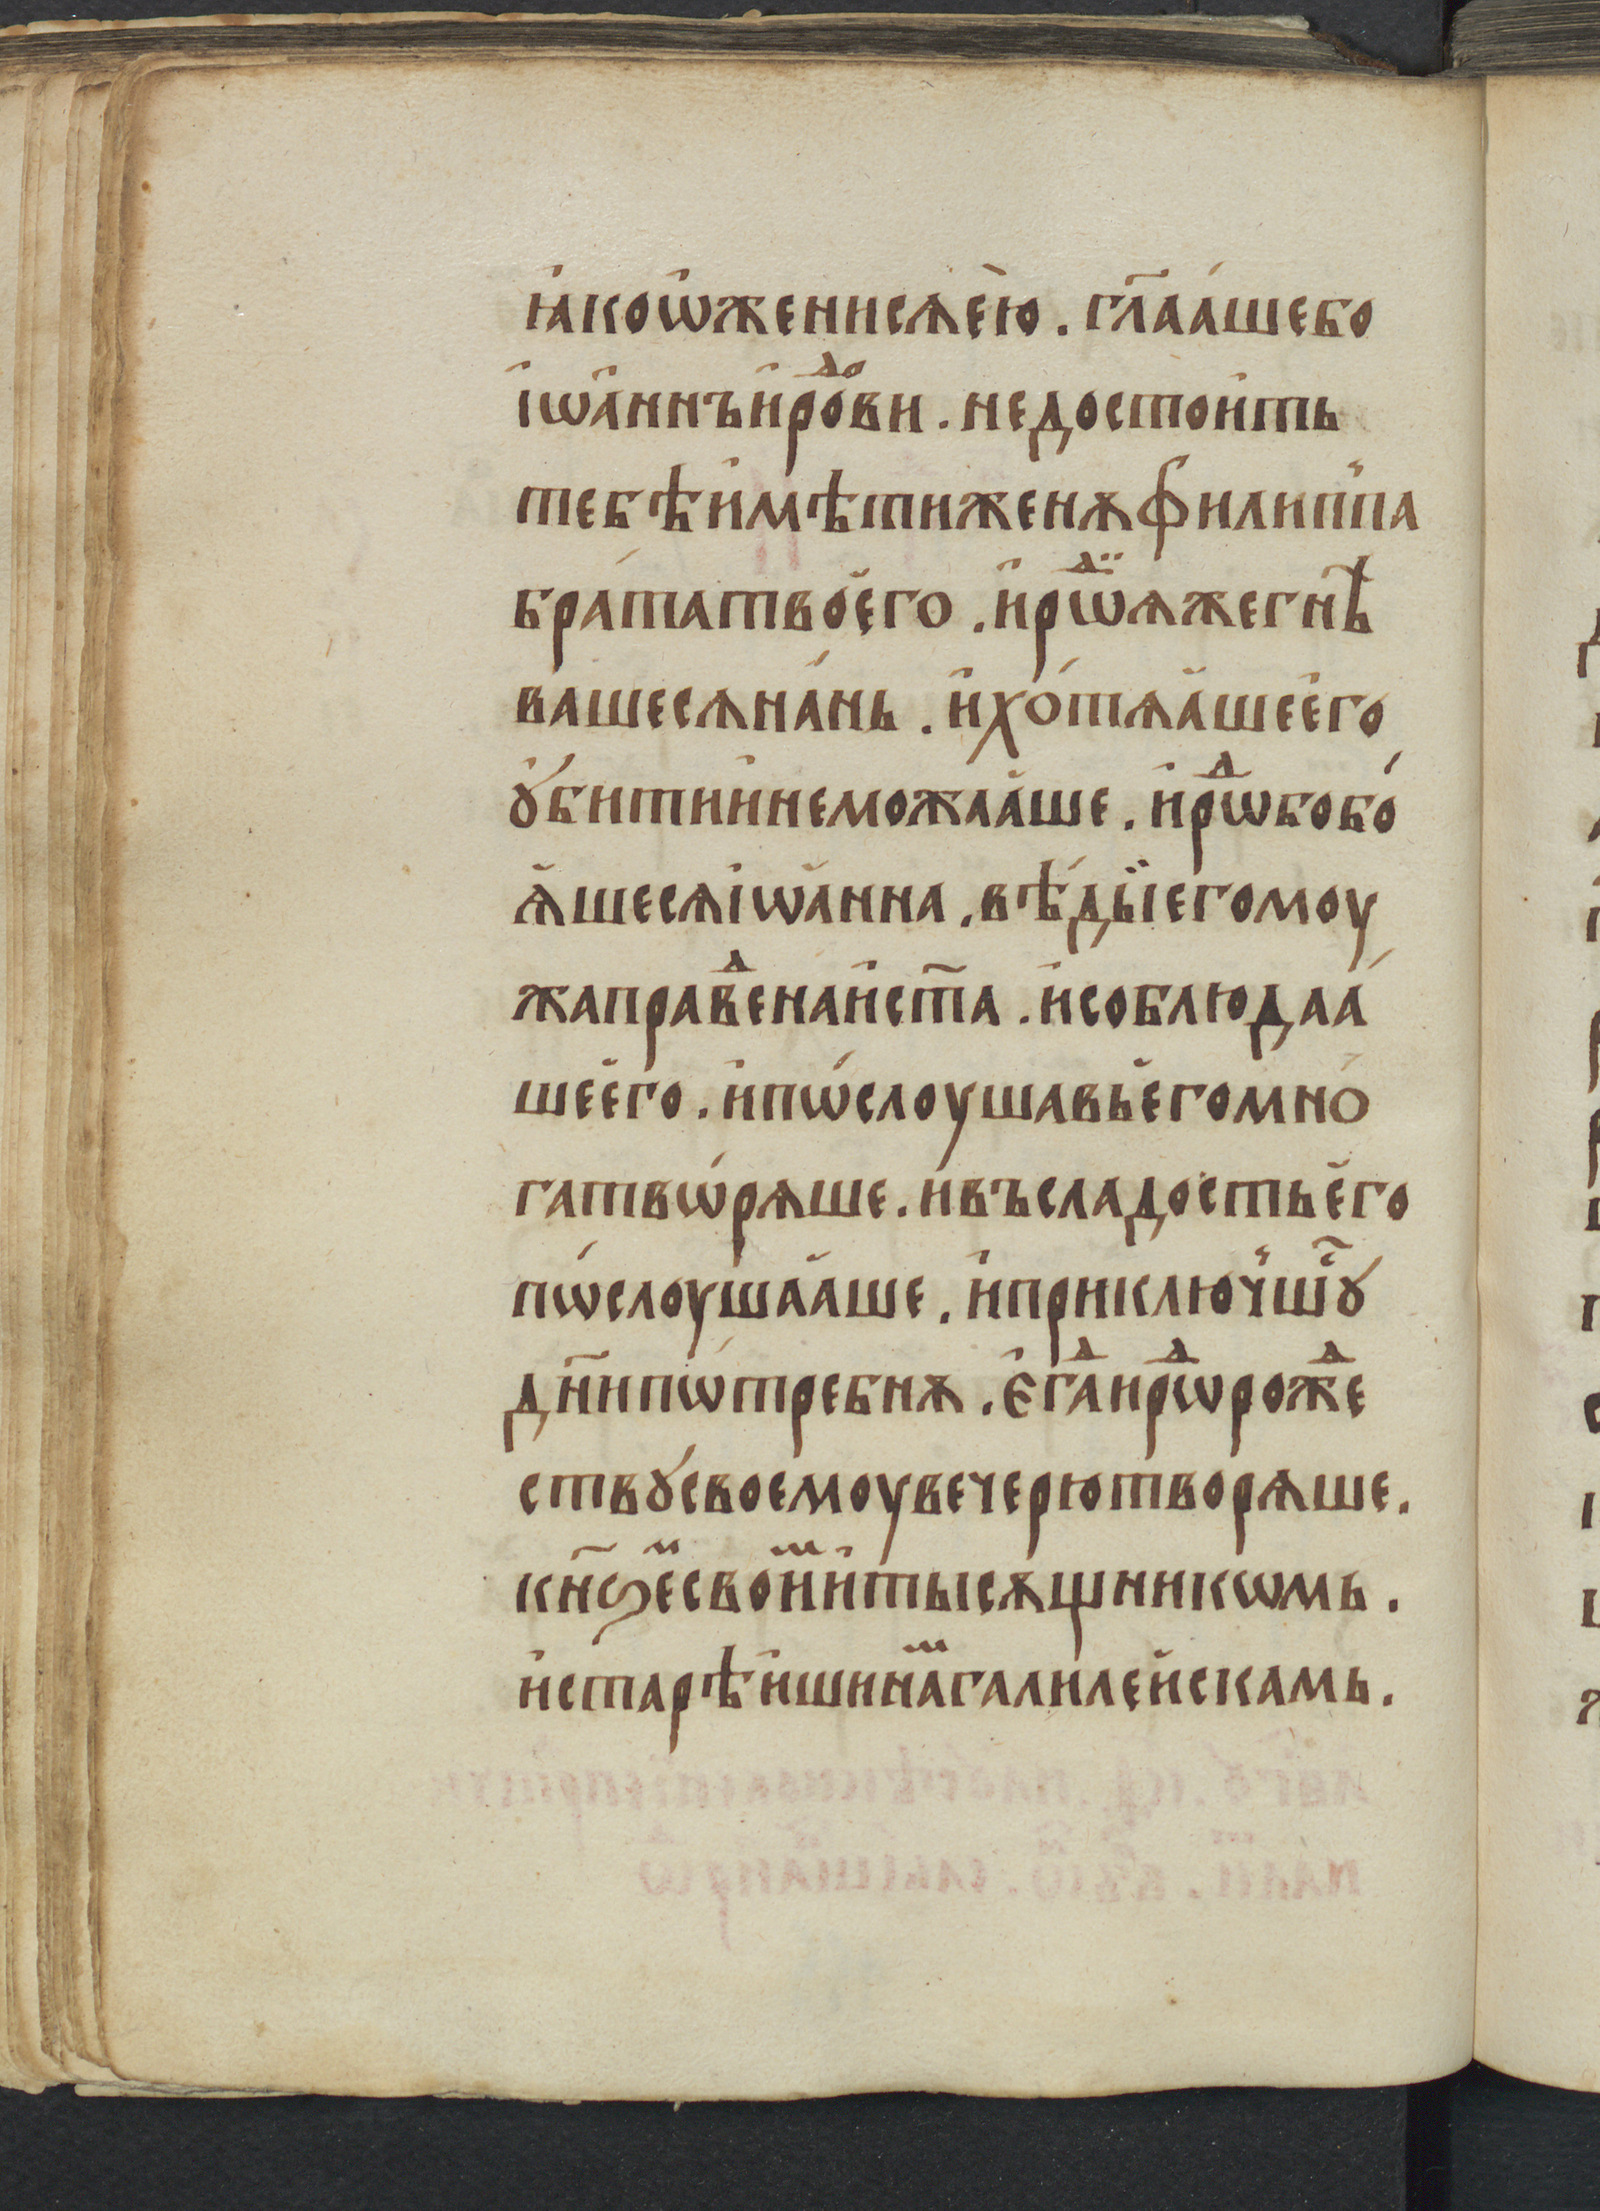 ꙗ҆коѡ҆женисѧе҆ю . гл҃аа́шебо
і҆ѡа҆ннъи҆рⷪ҇ⷣви . недостои҆ть
тебѣи҆мѣтиженѫфилиппа
бра́татвоего . и҆рѡⷣѧжегнѣ
вашесѧна́нь . и҆хо́тѧашеего
ꙋ҆битии҆неможааше . и҆рѡⷣбобо́
ѧшесѧіѡанна . вѣ́дыіегомоу
жаправⷣенаи҆ст҃а . и҆соблюдаа́
шеего . и҆пѡ́слоушавьегомно́
гатвѡ́рѧше . и҆въсладостьего
пѡ́слоушааше . и҆приключшꙋ҃
дн҃ипѡ́требнѫ . є҆гⷣаирѡⷣрожⷣе
ствꙋсвоемоувечерютворѧше .
кн҃ѕеⷨсвоиⷨи҆тысѫщникѡмь .
и҆старѣишинаⷨгалилейскамь .